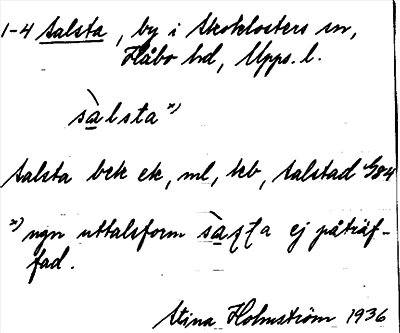 1-4 Salsta, by i Skoklosters sn,
Håbo hd, Upps. l.
sàlsta x)
Salsta bek ek, ml, kb, Salstad G84
x) ngn uttalsform ej påträf-
fad.
Stina Holmström 1936